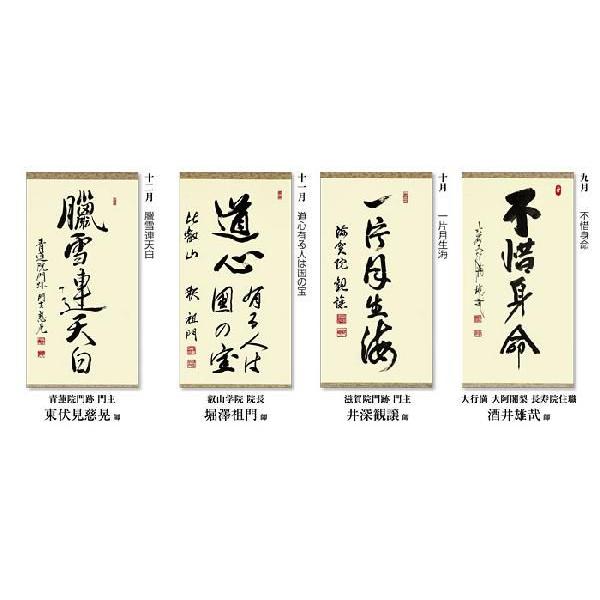 九月 不惜身命
不惜身命
大行満 大阿闍梨 長寿院住職
酒井雄哉 師
十月 一片月生海
一片月生海
滋賀院門跡 門主
井深観譲 師
十一月 道心有る人は国の宝
道心
有る人は
国の宝
比叡山 叡祖門
叡山学院 院長
堀澤祖門 師
十二月 臘雪連天白
臘雪連天白
青蓮院門跡 門主
東伏見慈晃 師